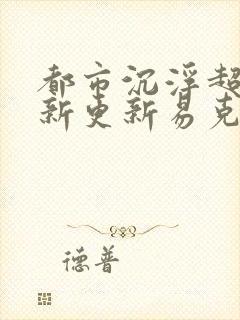 都市沉浮超
新更新易克
德普